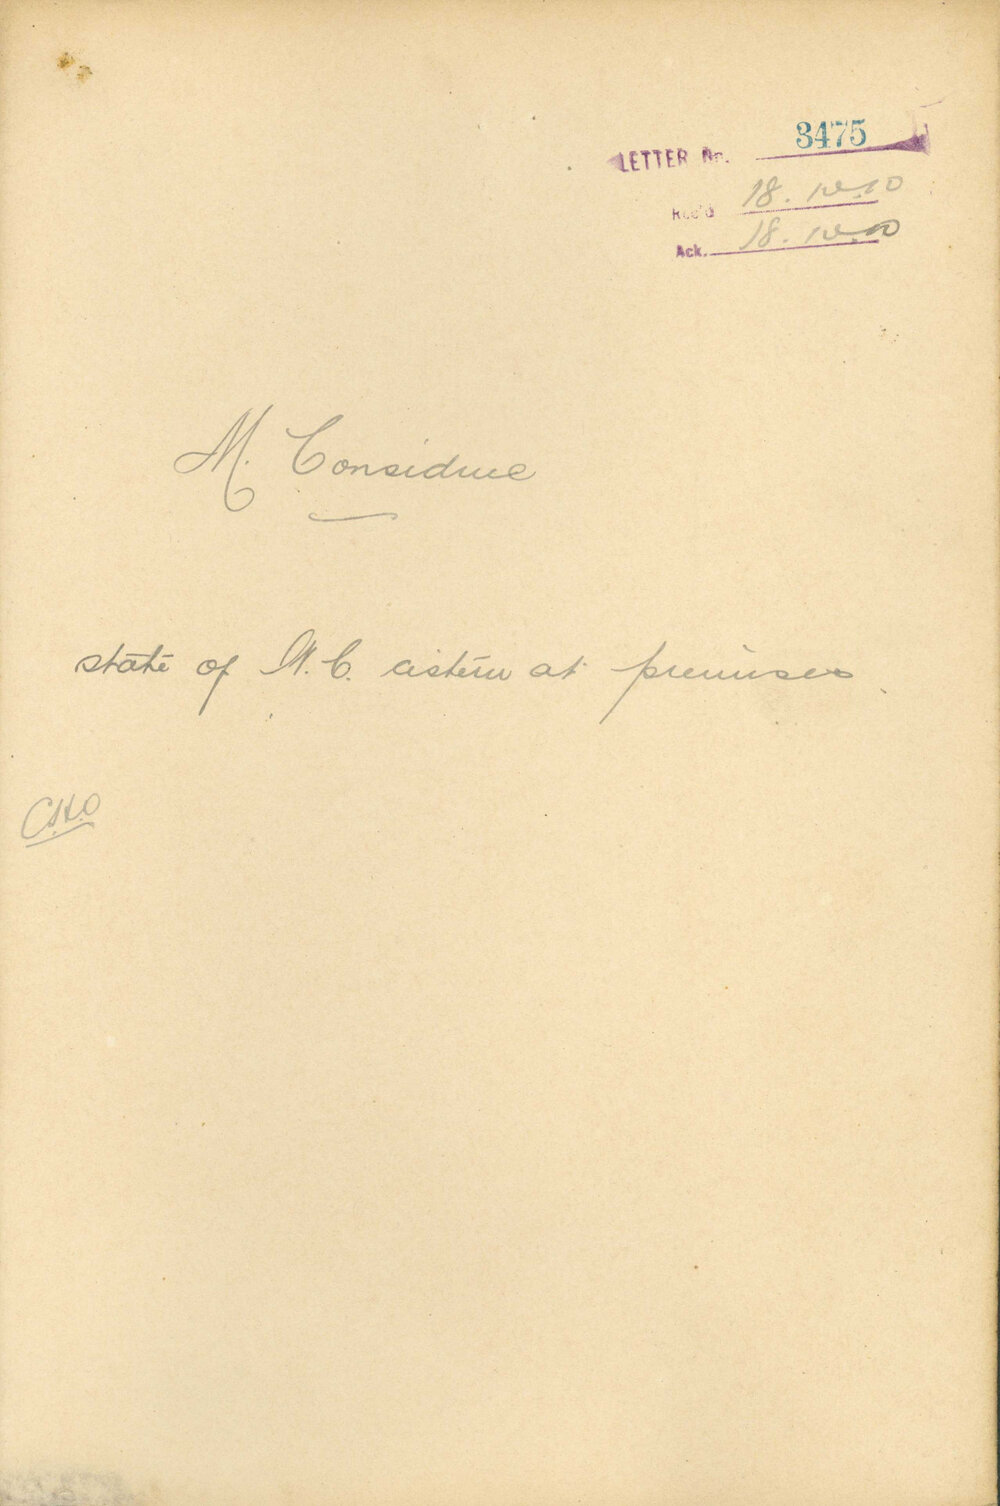 LETTER No. 3475
Rec'd 18.12.10
Ack. 18.12.10
M. Considine
state of W.C. cistern at premises
C.H.O